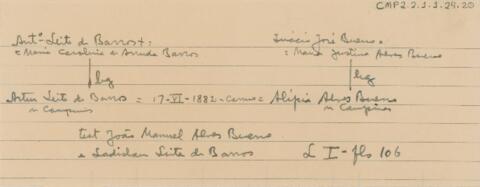 CMP2.2.1.1.24.20
Antº Leite de Barros +:
Inácio José Bueno =
= Maria Carolina de Arruda Barros
= Maria Justina Alves Bueno
leg
leg
Artur Leite de Barros = 17-VI-1882-Camp = Alípia Alves Bueno
n Campinas
n Campinas
test João Manuel Alves Bueno
e Ladislau Leite de Barros
L I - fls 106